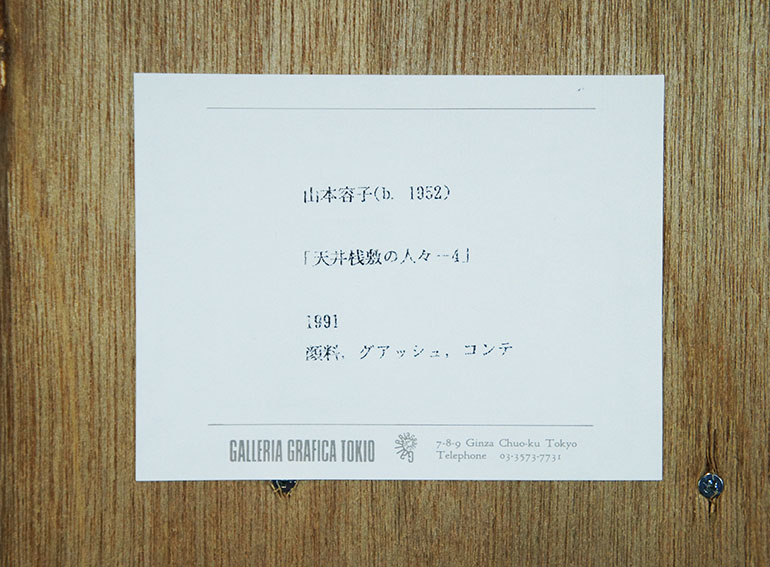 山本容子(b. 1952)
「天井桟敷の人々−4」
1991
顔料, グアッシュ, コンテ
GALLERIA GRAFICA TOKIO
7-8-9 Ginza Chuo-ku Tokyo
Telephone 03-3573-7731